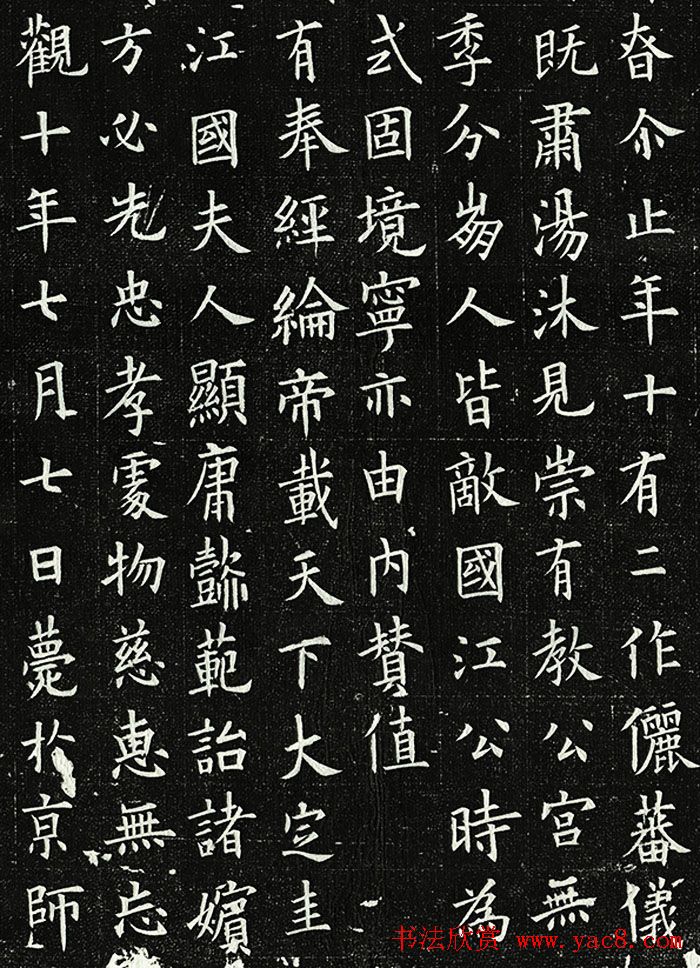 春介止年十有二作儷蕃儀
既肅湯沐見崇有教公宮無
季分崩人皆敵國江公時為
式固境寧亦由内贊值
有奉經綸帝載天下大定圭
江國夫人顯庸懿範詒諸嬪
方必先忠孝處物慈惠無忘
觀十年七月七日薨於京師
书法欣赏 www.yac8.com